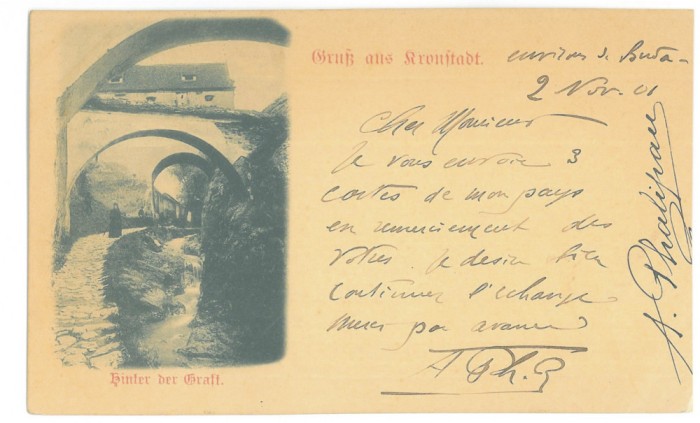 Gruß aus Kronstadt.
environs de Buda-
2 Nov. 01
Cher Monsieur
Je vous envoie 3
cartes de mon pays
en remerciement des
votres. Je desire bien
continuer l'echange
merci par avance
A Ph.
A.
Hinter der Graft.